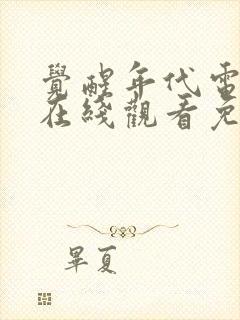 覺醒年代電
在綫觀看免
畢夏